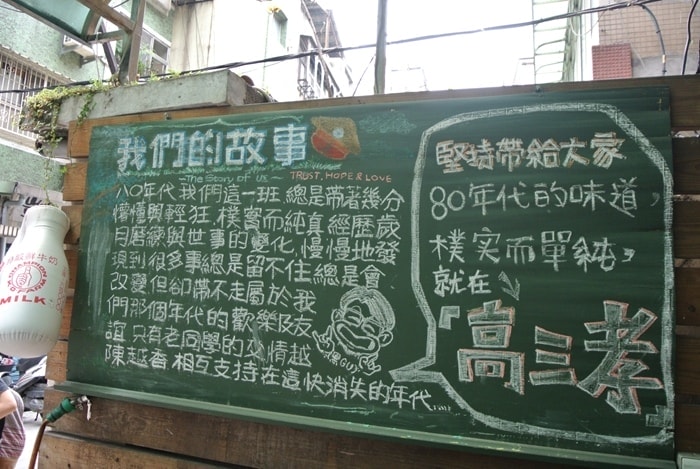 我們的故事
The Story of us
TRUST, HOPE & LOVE
八〇年代我們這一班總是帶著幾分
懵懂與輕狂.樸實而純真經歷歲
月磨練與世事的變化,慢慢地發
現到很多事總是留不住總是會
改變但卻帶不走屬於我
們那個年代的歡樂及友
誼只有老同學的交情越
陳越香相互支持在這快消失的年代....
堅持帶給大家
80年代的味道,
樸实而單純,
就在
「高三孝」
MILK